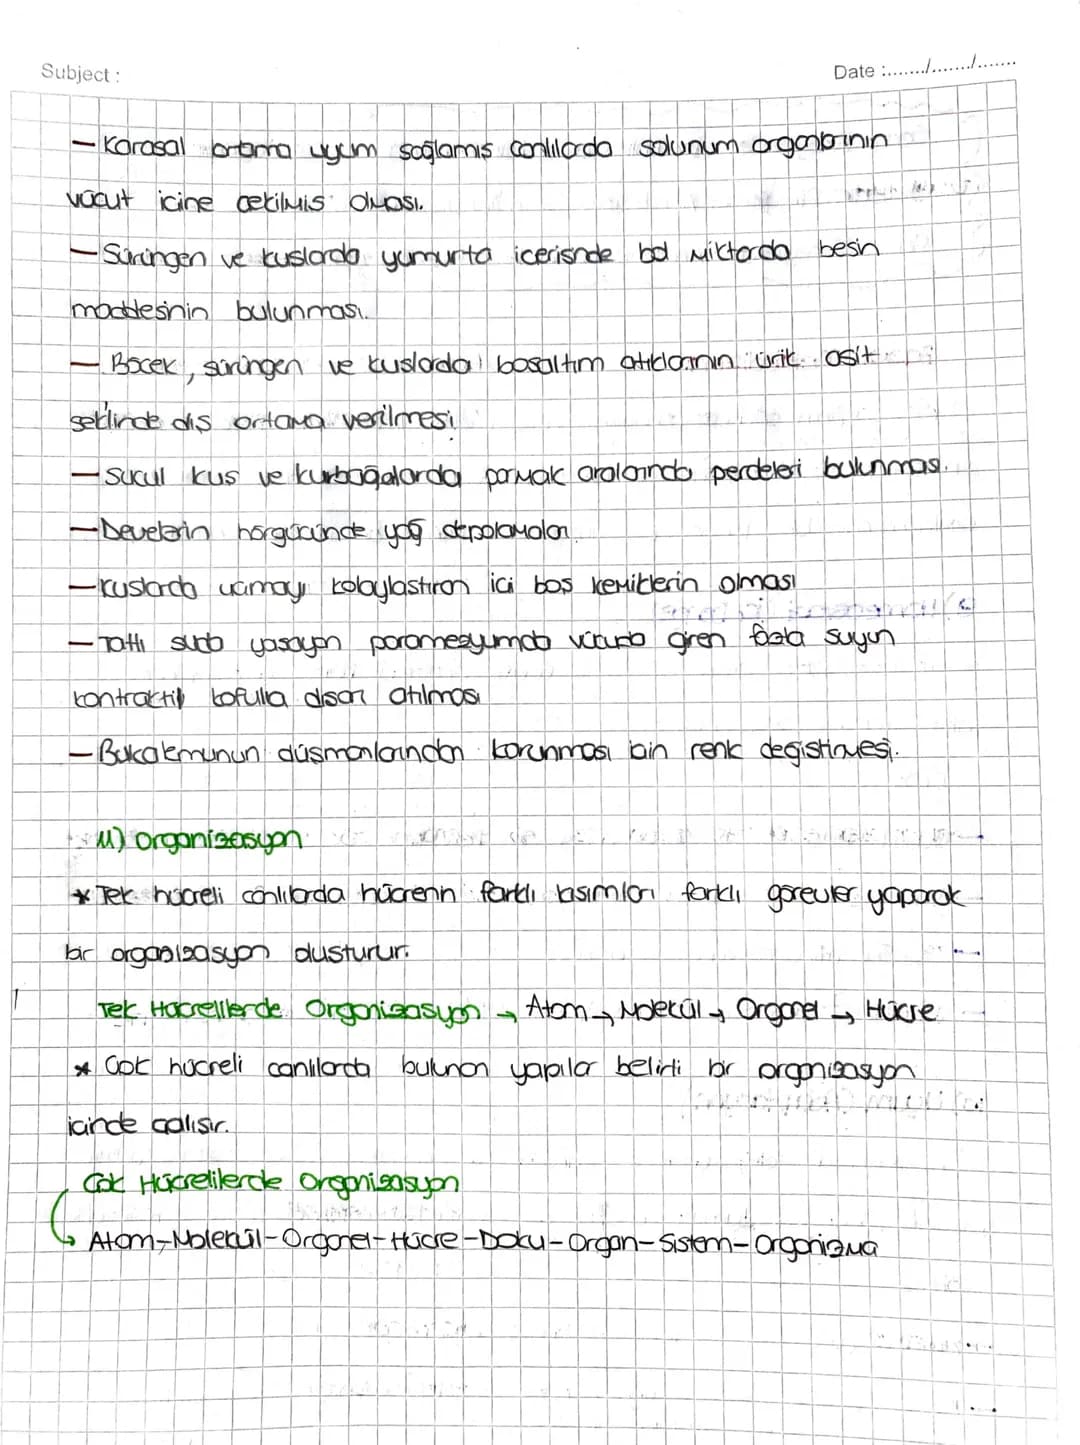 Subject :
Date :......./......./.......
— Karasal ortama uyum sağlamış canlılarda solunum organlarının
vücut içine çekilmiş olması.
— Sürüngen ve kuslarda yumurta icerisnde bol miktarda besin
maddesinin bulunması.
— Böcek, sürüngen ve kuslarda bosaltım atıklarının ürik asit
seklinde dıs ortama verilmesi
— Sucul kus ve kurbağalarda parmak aralarında perdeleri bulunması.
— Develerin hörgücünde yağ depolamaları
— Kuslarda ucmayı kolaylastıran ici bos kemiklerin olması
— Tatlı suda yasayan paramesyumda vücuda giren fazla suyun
kontraktil kofulla dısarı atılması
— Bukalemunun düsmanlarından korunması icin renk degistirmesi.
11) Organizasyon
* Tek hücreli canlılarda hücrenin farklı kısımları farklı görevler yaparak
bir organizasyon olusturur.
Tek Hücrelilerde Organizasyon → Atom → Molekül → Organel → Hücre
* Cok hücreli canlılarda bulunan yapılar belirli bir organizasyon
icinde calısır.
Cok Hücrelilerde Organizasyon
↳ Atom-Molekül-Organel-Hücre-Doku-Organ-Sistem-Organizma